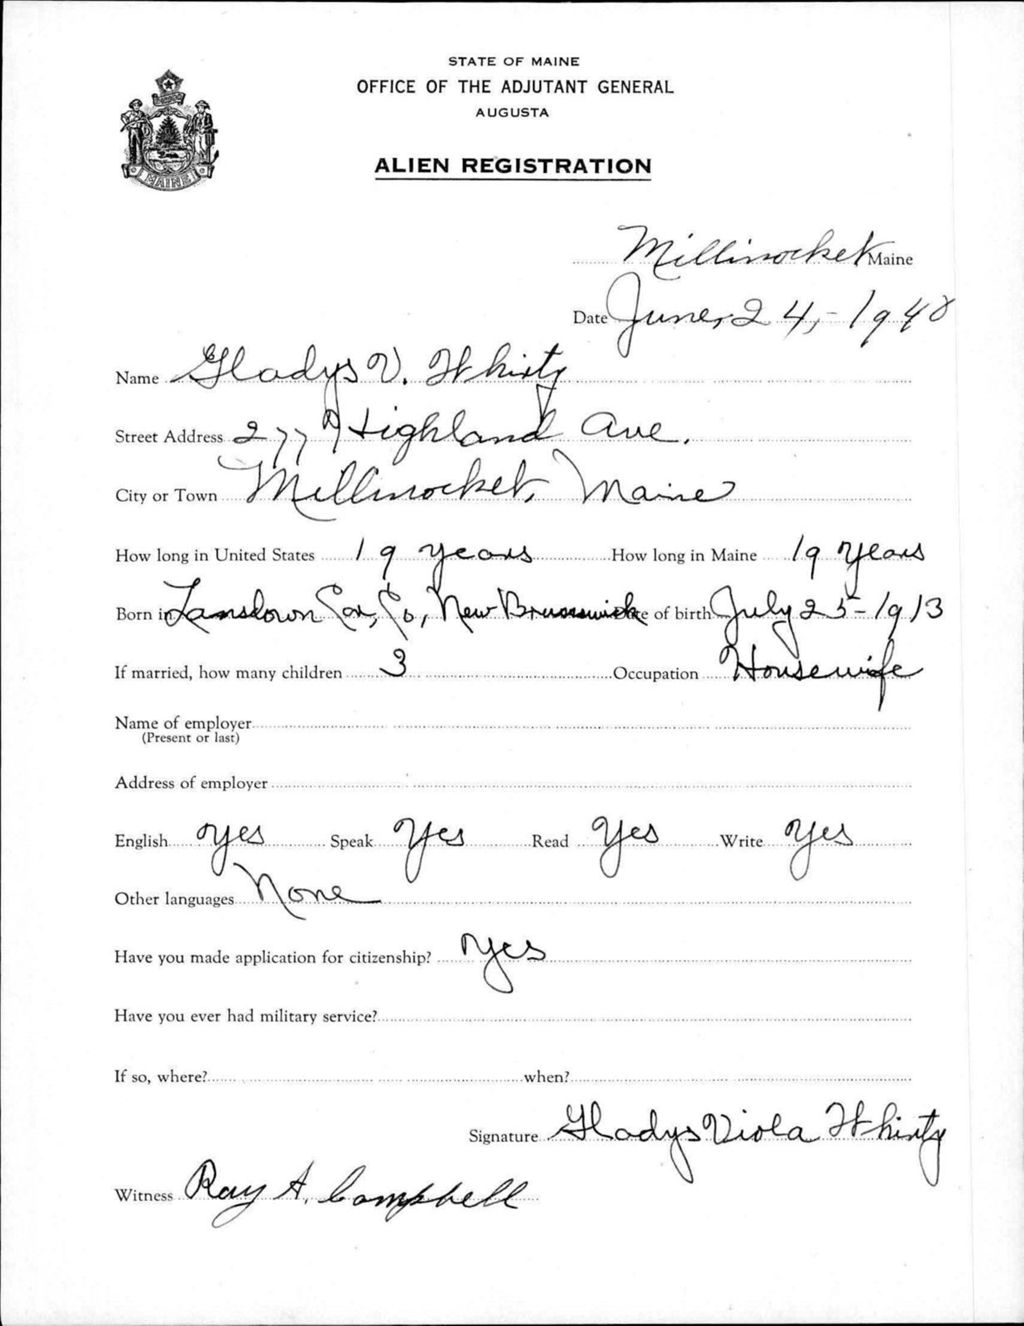 STATE OF MAINE
OFFICE OF THE ADJUTANT GENERAL
AUGUSTA
ALIEN REGISTRATION
MAINE
Millinocket Maine
Date June, 24, - 1940
Name Gladys V. Whirty
Street Address 277 Highland Ave.
City or Town Millinocket, Maine
How long in United States 19 years How long in Maine 19 years
Born in Lansdown Car, Co, New Brunswick Date of birth July 25 - 1913
If married, how many children 3 Occupation Housewife
Name of employer
(Present or last)
Address of employer
English yes Speak Yes Read Yes Write yes
Other languages None
Have you made application for citizenship? yes
Have you ever had military service?
If so, where? when?
Signature Gladys Viola Whirty
Witness Ray A. Campbell